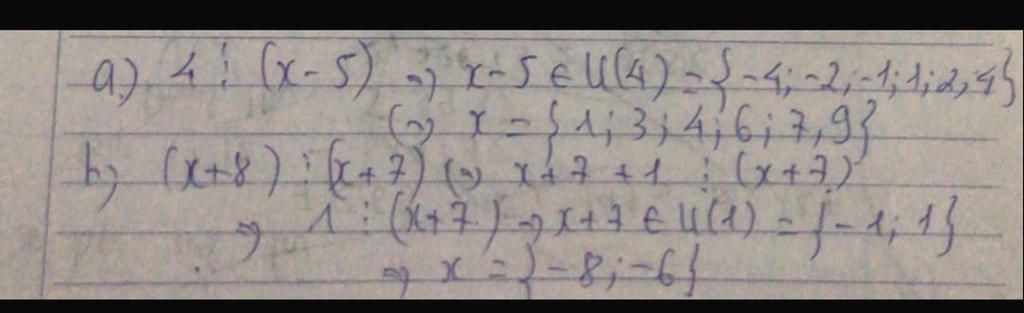 a) 4 ⋮ (x-5) => x-5 ∈ Ư(4) = {-4; -2; -1; 1; 2; 4}
<=> x = {1; 3; 4; 6; 7, 9}
b) (x+8) ⋮ (x+7) <=> x+7+1 ⋮ (x+7)
=> 1 ⋮ (x+7) => x+7 ∈ Ư(1) = {-1; 1}
=> x = {-8; -6}